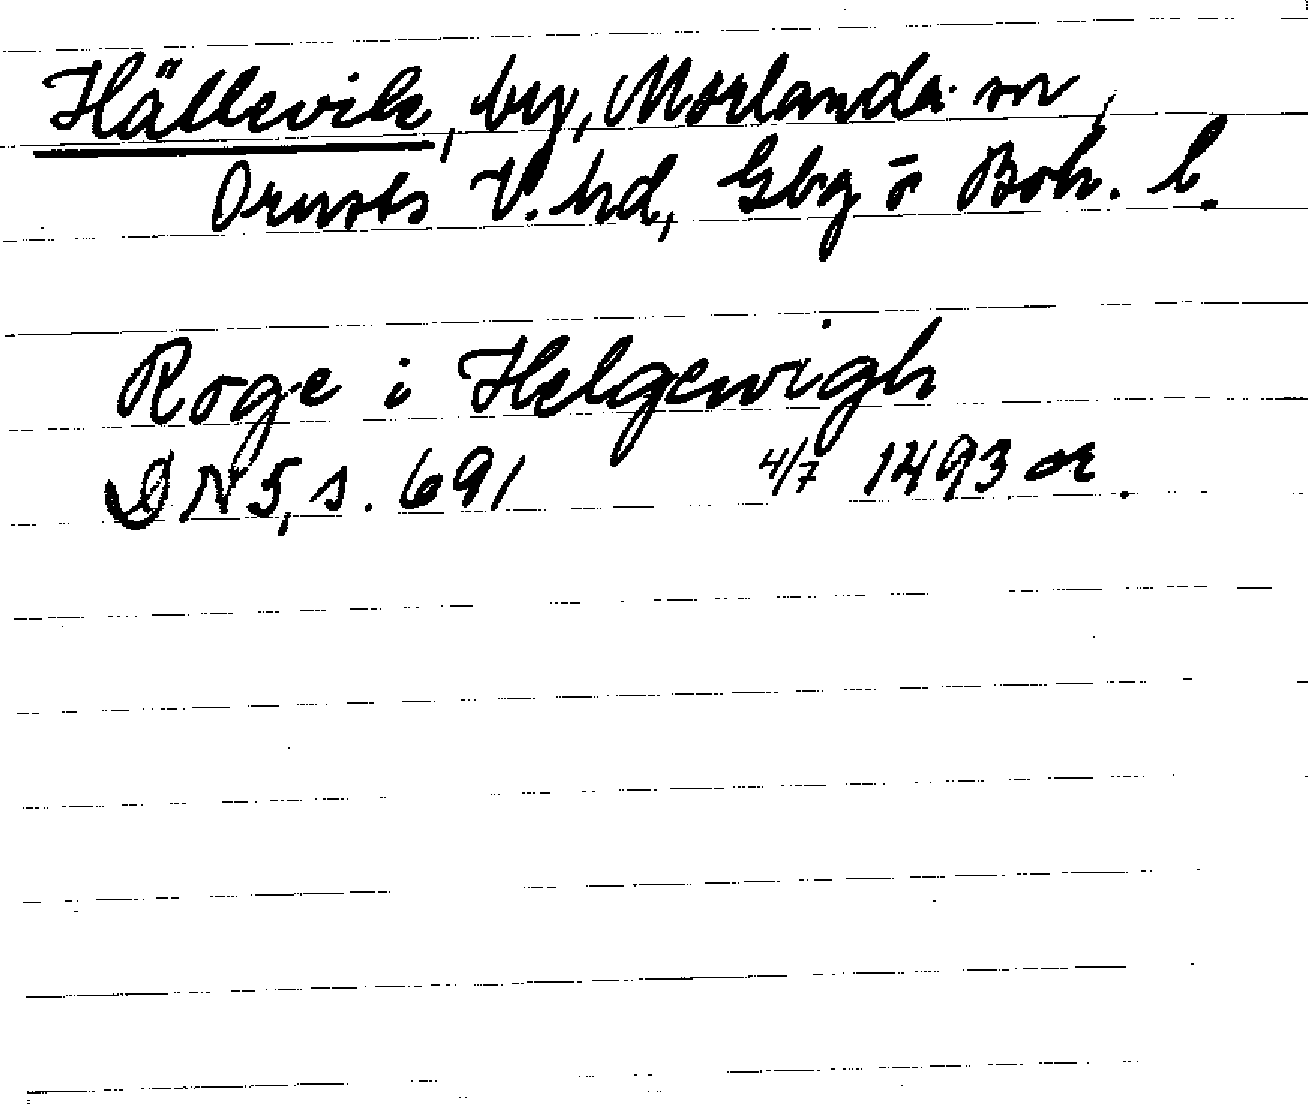 Hällevik, by, Morlanda sn,
Orusts V. hd, Gbg o Boh. l.
Roge i Helgewigh
DN 5, s. 691 4/7 1493 or.